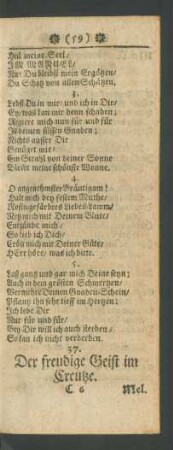 (59)
Hül meine Seel/
IMMANUEL/
Nur Du bleibst mein Ergötzen/
Du Schatz von allen Schätzen.
3.
Lebst Du in mir/ und ich in Dir/
Ey/ was kan mir denn schaden;
Regiere mich nun für und für
In deinen süssen Gnaden;
Nichts ausser Dir
Genüget mir/
Ein Strahl von deiner Sonne
Bleibt meine schönste Wonne.
4.
O angenehmster Bräutigam!
Halt mich bey festem Muthe/
Rosinge färbtes Liebes-Lamm/
Netz mich mit Deinem Blute/
Entzünde mich/
So lieb ich Dich/
Tröst mich mit Deiner Güte/
HErr höre/ was ich bitte.
5.
Laß gantz und gar mich Deine seyn;
Auch in den grösten Schmertzen/
Vermehre Deinen Gnaden-Schein/
Pflantz ihn sehr tieff im Hertzen;
Ich lebe Dir
Nur für und für/
Bey Dir will ich auch sterben/
So kan ich nicht verderben.
37.
Der freudige Geist im
Creutze.
C 6 Mel.